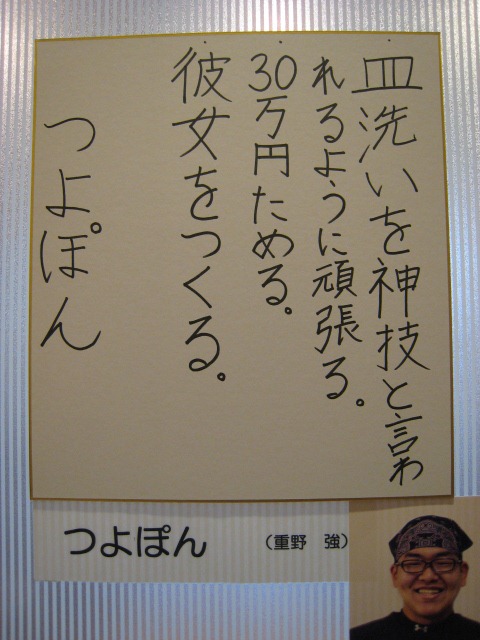 ・皿洗いを神技と言わ
れるように頑張る。
・30万円ためる。
・彼女をつくる。
つよぽん
つよぽん
（重野 強）